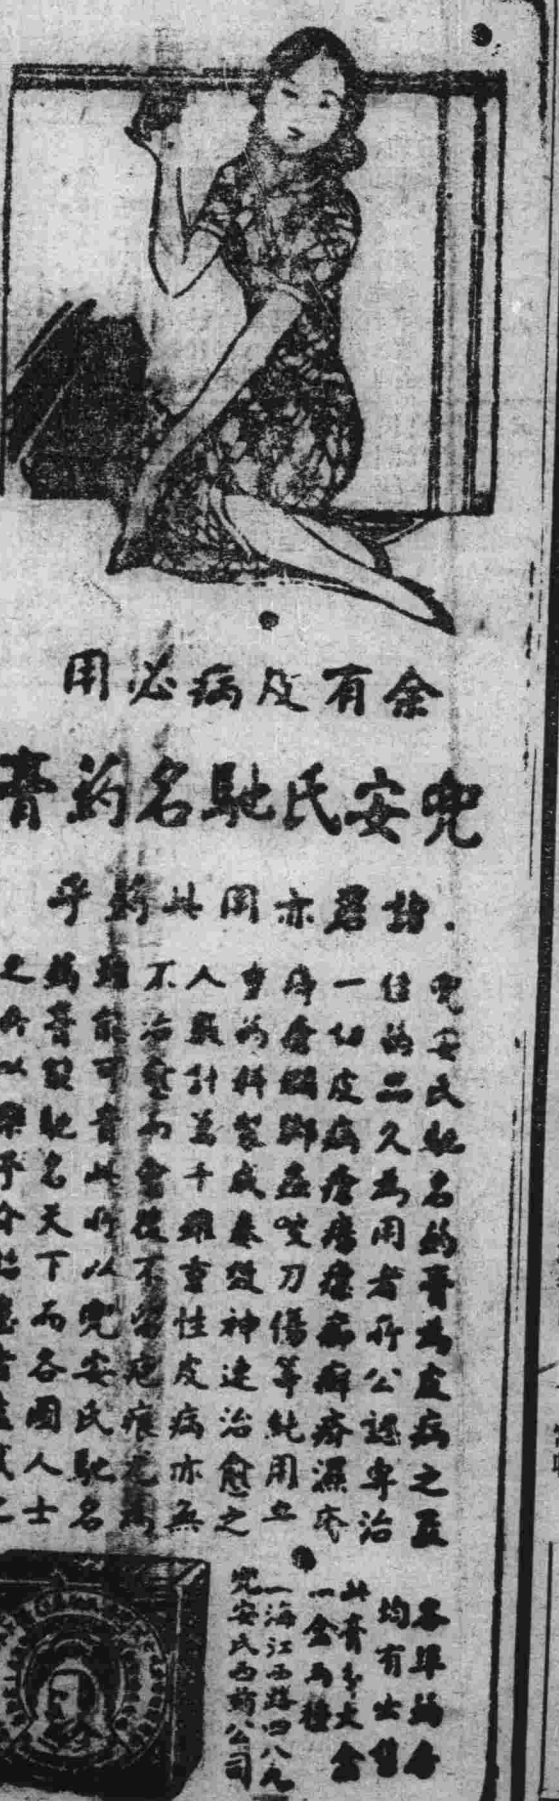 余有皮病必用
兜安氏馳名药膏
諸君亦用其药乎
兜安氏馳名药膏為皮病之至
佳药品久為用者所公認專治
一切皮病瘡瘍癤癬疥濕疹
痔瘡爛腳蟲咬刀傷等純用
药料製成奏效神速治愈之
人數計萬千雖重性皮病亦無
不治愈而會後不留疤痕尤為
能可貴此所以兜安氏馳名
药膏馳名天下而各國人士
之所以樂予介紹
各埠药房
均有出售
此膏分大盒
一盒兩種
海江西路四八九
兜安氏西药公司